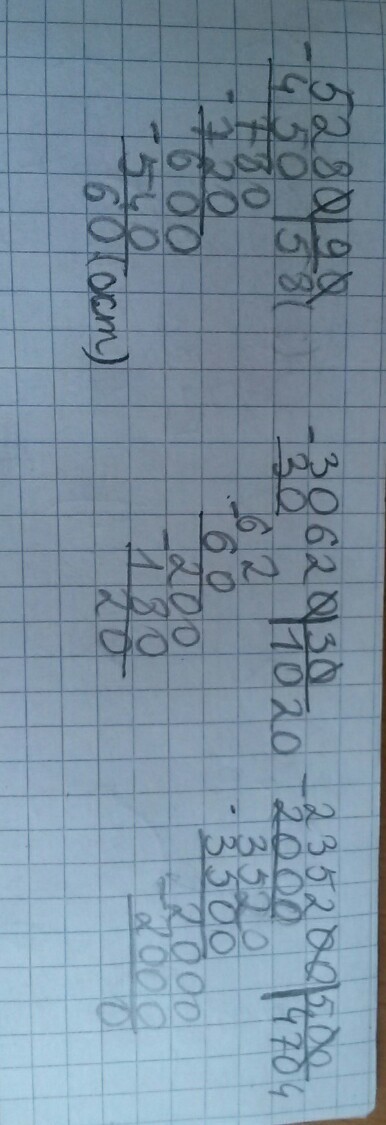 -5280|90
450|58(
780
-720
600
-540
60(ост)
-30620|30
30|1020
62
-60
200
-180
20
-2352000|500
2000|4704
3520
-3500
2000
-2000
0